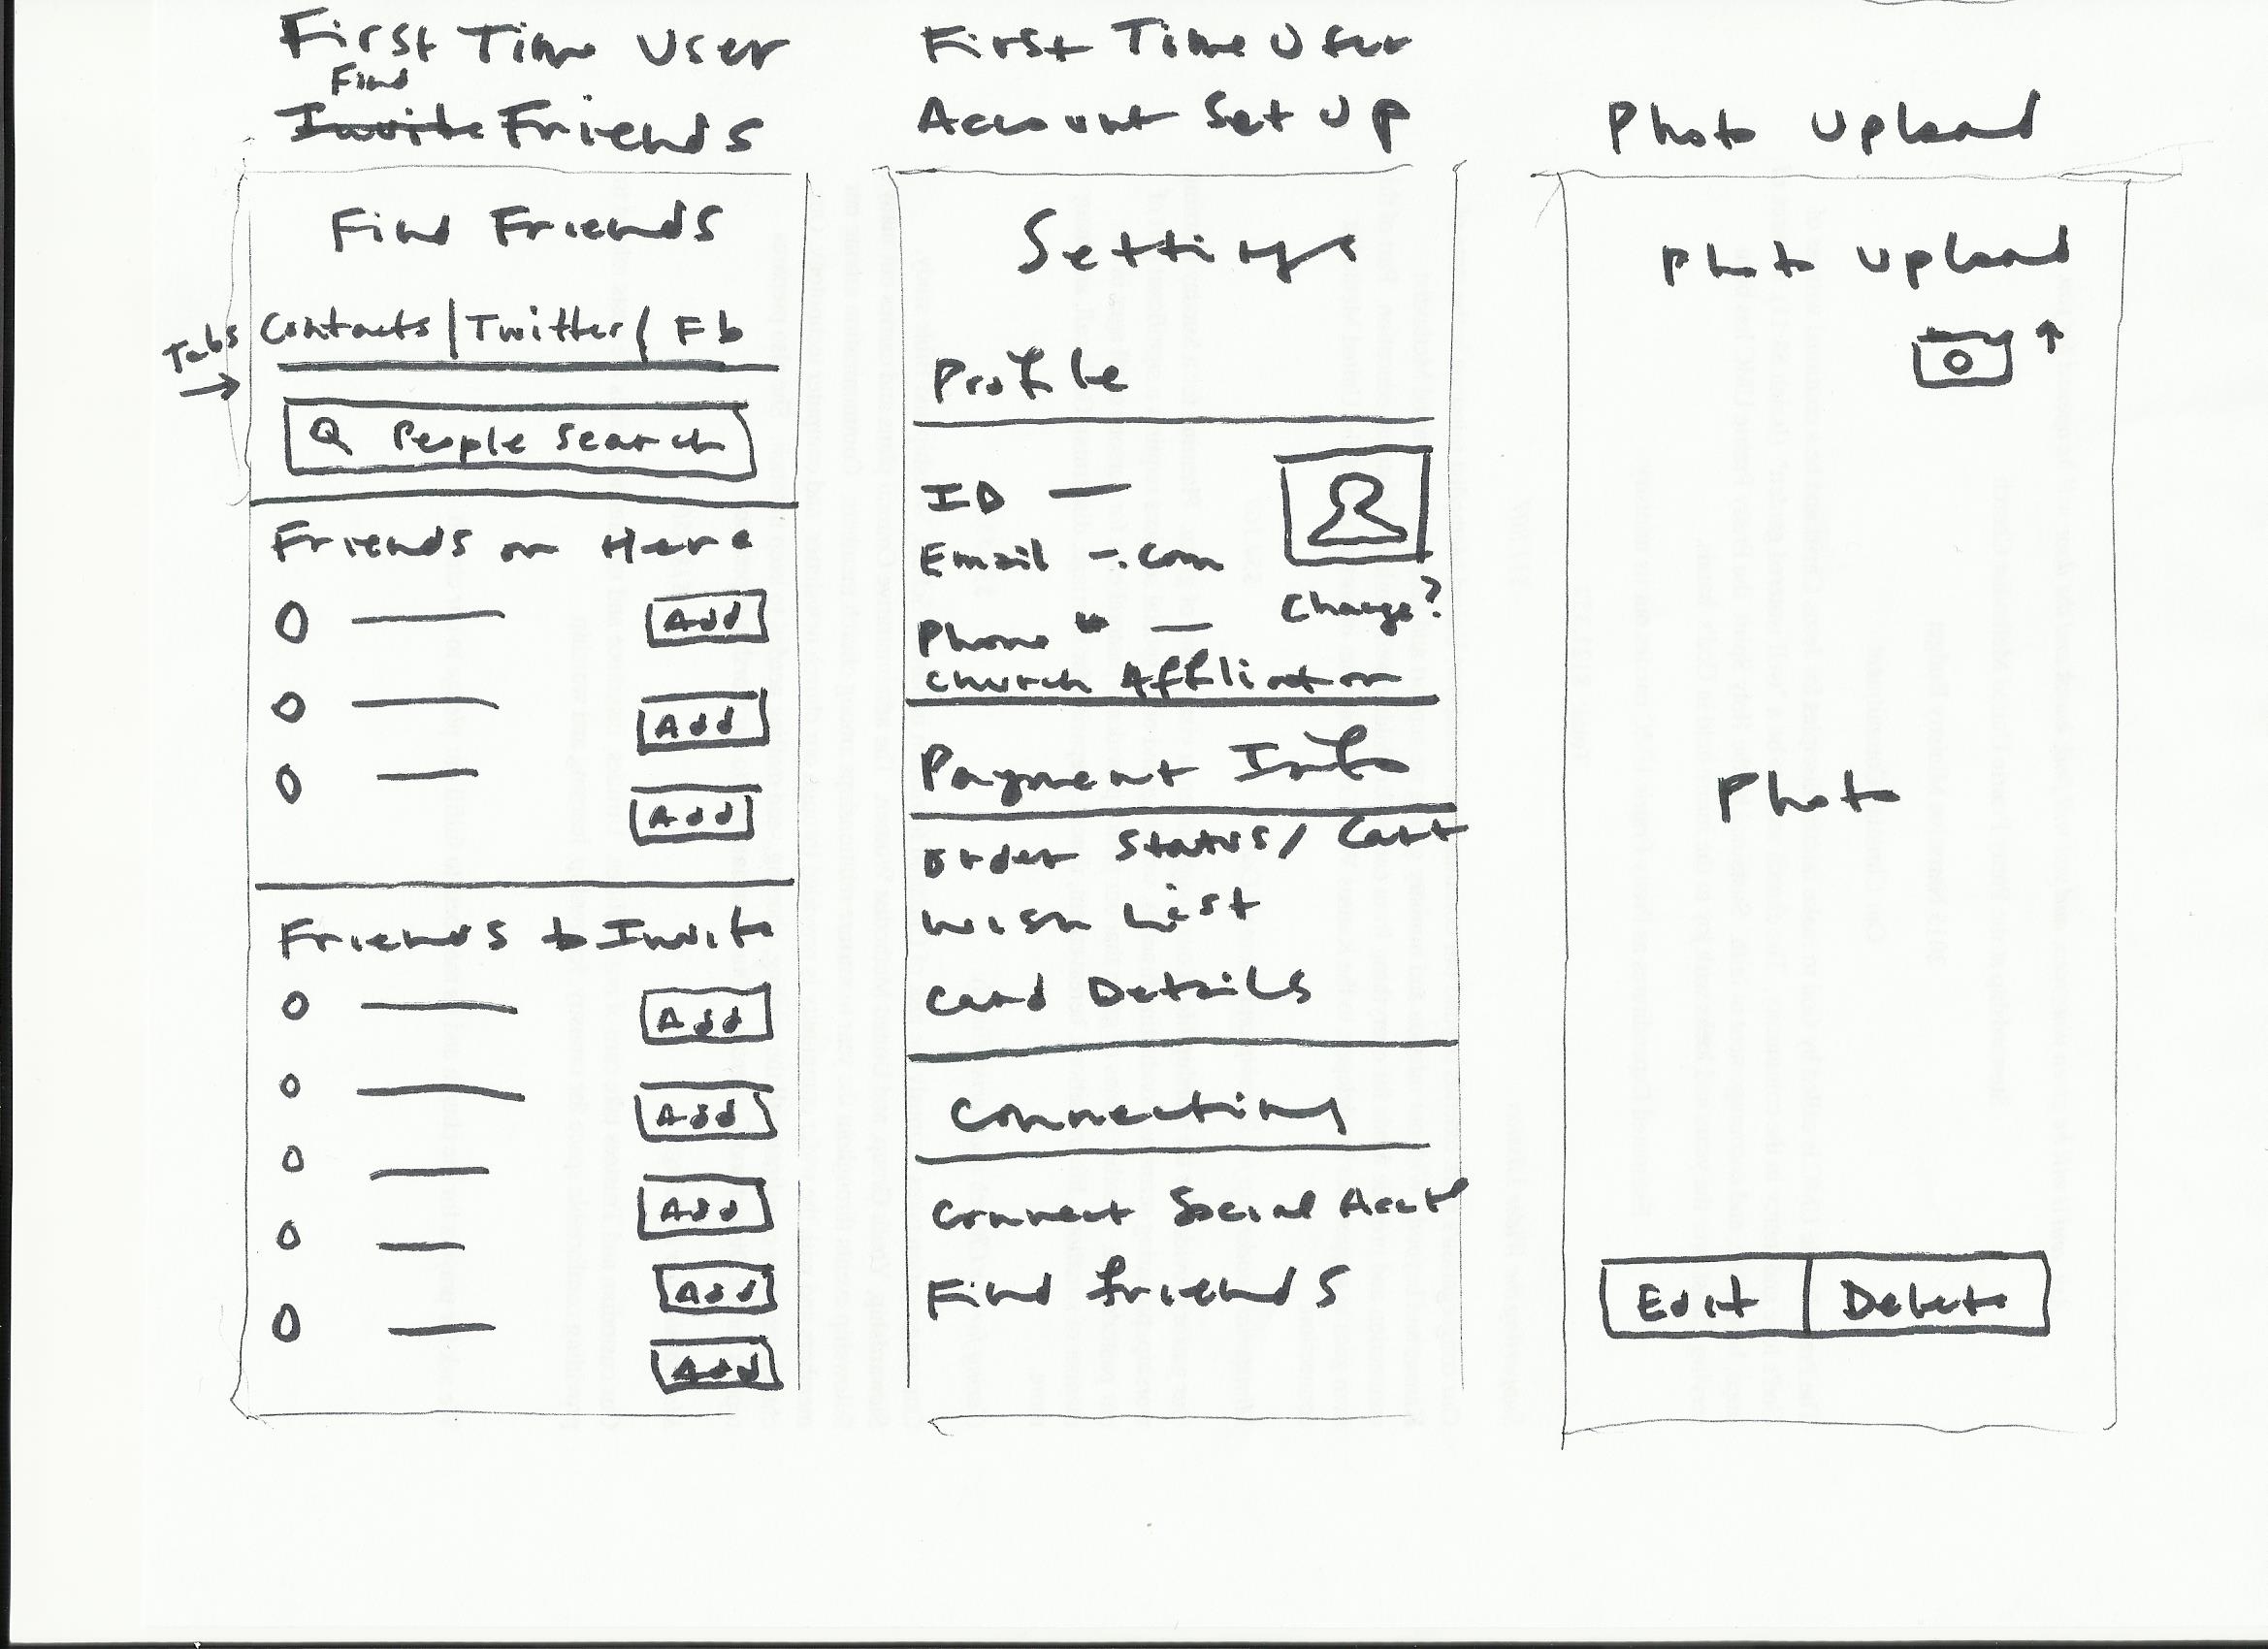 First Time User
Find
Invite Friends
Find Friends
Tabs
Contacts | Twitter | Fb
People Search
Friends on Here
Add
Add
Add
Friends to Invite
Add
Add
Add
Add
Add
First Time User
Account Set Up
Settings
Profile
ID —
Email -.com
Phone # —
Change?
Church Affiliation
Payment Info
Order Status/ Cart
Wish List
Card Details
Connecting
Connect Social Acct
Find friends
Photo Upload
Photo Upload
Photo
Edit | Delete